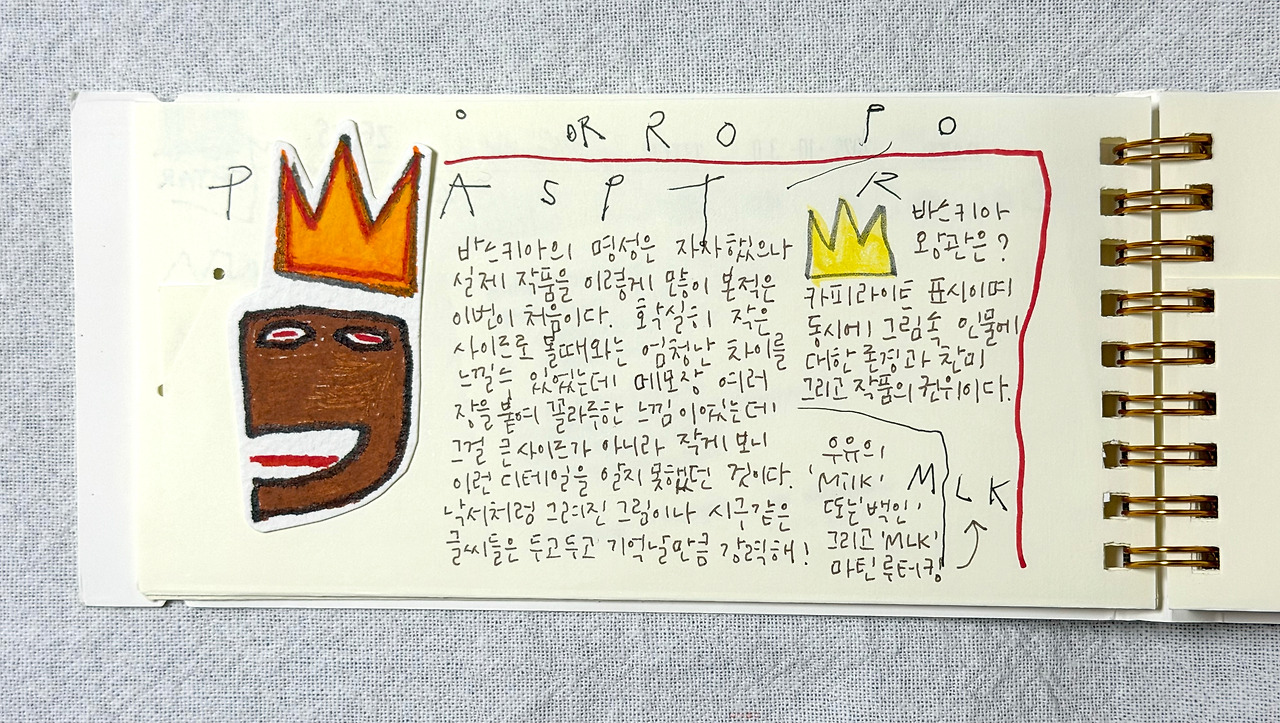 o OR R O P O
P A S P T R
바스키아의 명성은 자자했으나
실제 작품을 이렇게 많이 본적은
이번이 처음이다. 확실히 작은
사이즈로 볼때와는 엄청난 차이를
느낄수 있었는데 메모장 여러
장을 붙여 꼴라주한 느낌이었는데
그걸 큰사이즈가 아니라 작게 보니
이런 디테일을 알지 못했던 것이다.
낙서처럼 그려진 그림이나 시구같은
글씨들은 두고두고 기억날만큼 강력해!
바스키아
왕관은?
카피라이트 표시이며
동시에 그림속 인물에
대한 존경과 찬미
그리고 작품의 권위이다.
우유의
'Milk'
또는 백인,
그리고 'MLK'
마틴루터킹
M L K